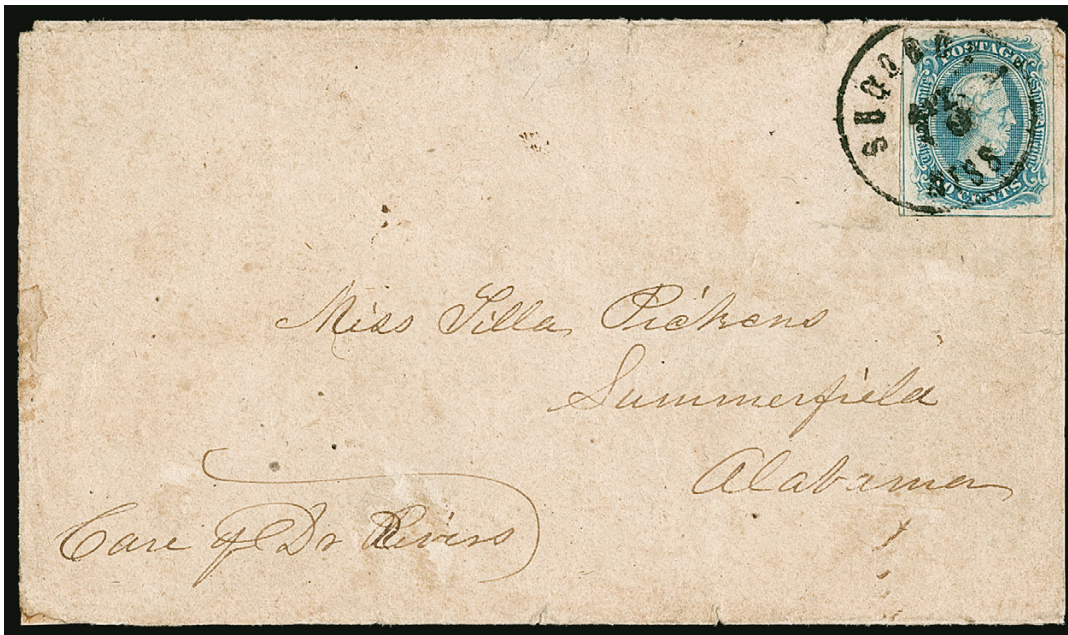 POSTAGE
MISS
CENTS
Miss Tilla Pickens
Summerfield
Alabama
Care of Dr Rivers